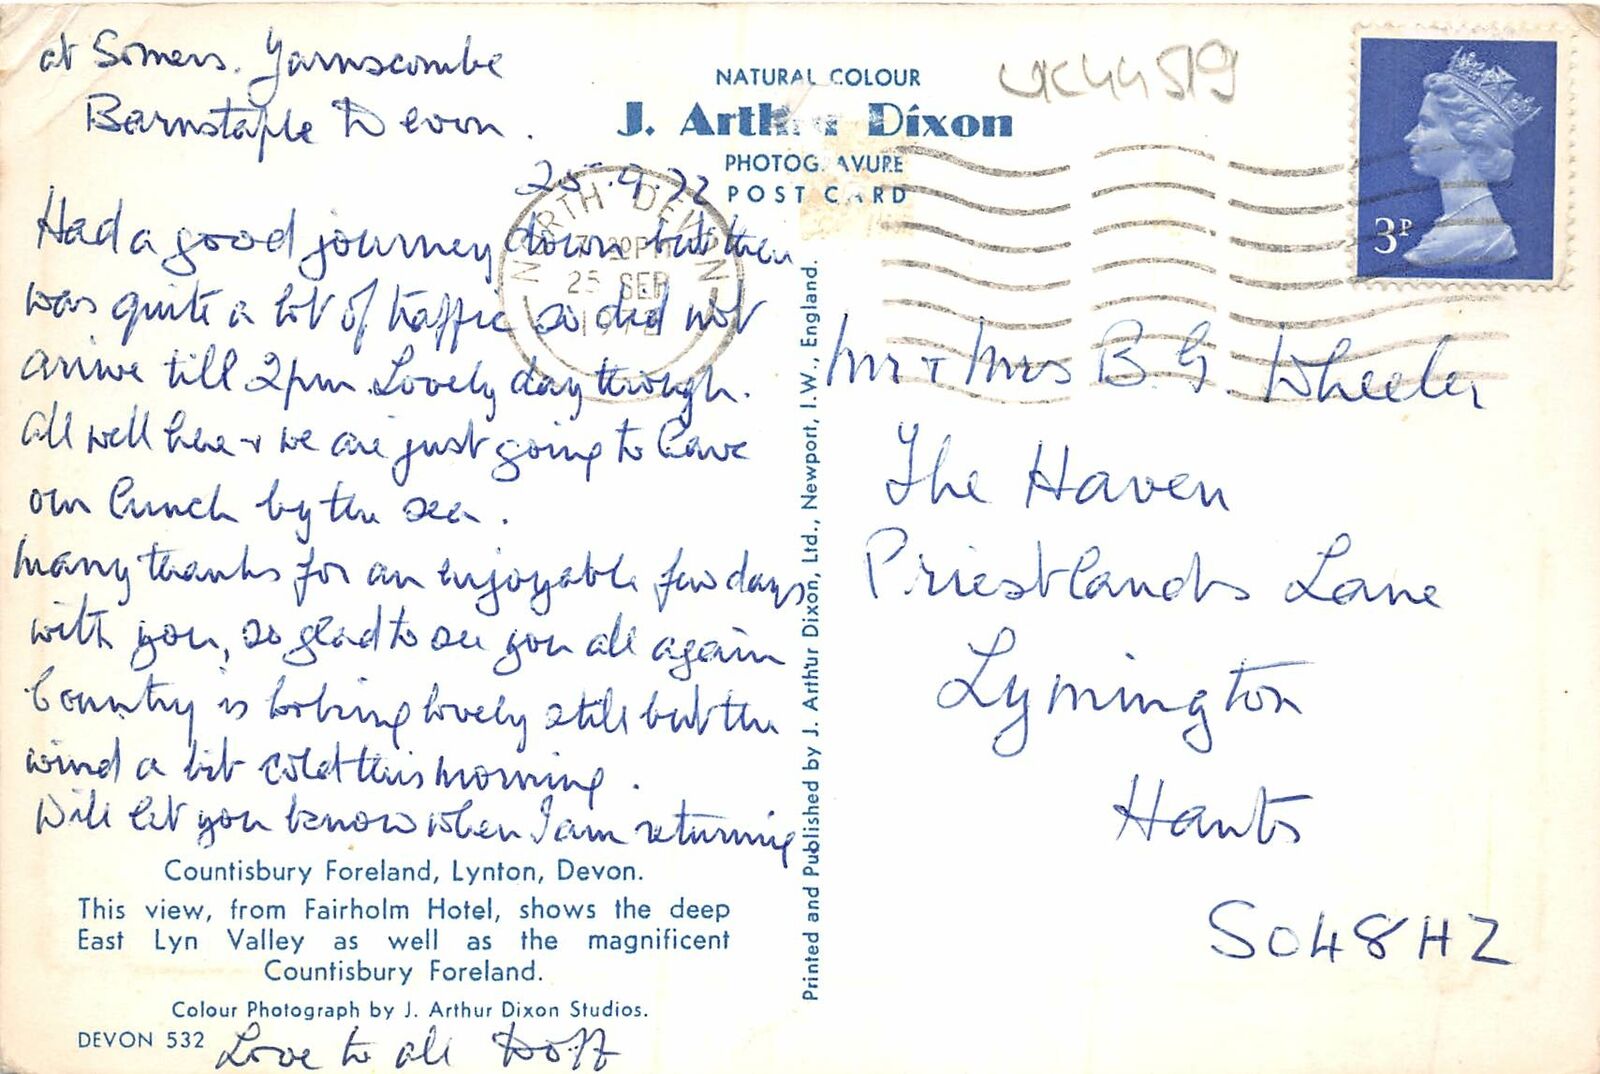 at Somers. Yarnscombe
Barnstaple Devon.
25.9.72
Had a good journey down but then
was quite a lot of traffic so did not
arrive till 2pm Lovely day though.
All well here + we are just going to have
our lunch by the sea.
Many thanks for an enjoyable few days
with you, so glad to see you all again
Country is looking lovely still but the
wind a bit cold this morning.
Will let you know when I am returning
Love to all
NATURAL COLOUR
J. Arthur Dixon
PHOTOGRAVURE
POST CARD
UK44519
NORTH DEVON
25 SEP
3P
Mr + Mrs B. G. Wheeler
The Haven
Priestlands Lane
Lymington
Hants
SO4 8HZ
Printed and Published by J. Arthur Dixon, Ltd., Newport, I.W., England.
Countisbury Foreland, Lynton, Devon.
This view, from Fairholm Hotel, shows the deep
East Lyn Valley as well as the magnificent
Countisbury Foreland.
Colour Photograph by J. Arthur Dixon Studios.
DEVON 532